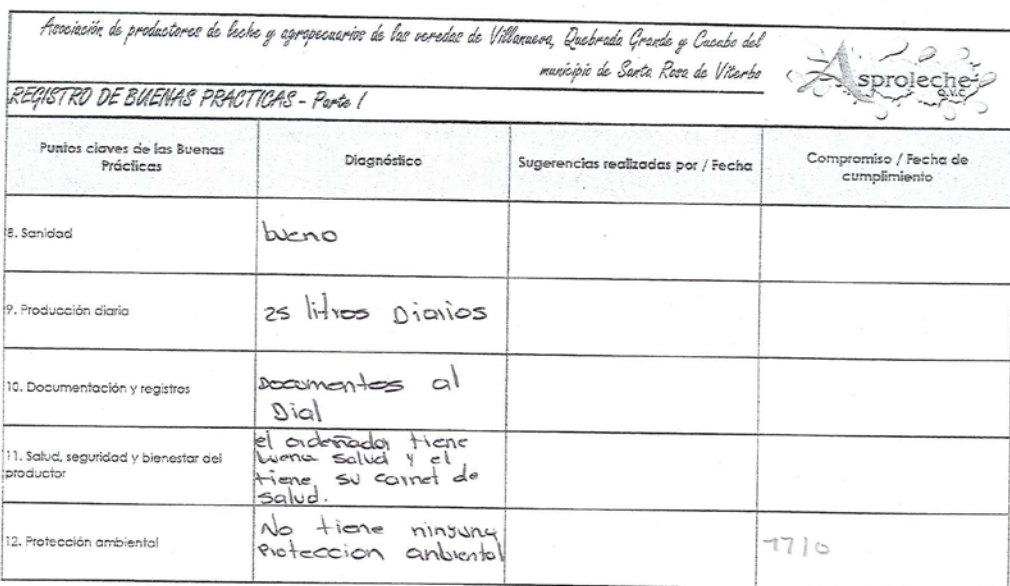 Asociación de productores de leche y agropecuarios de las veredas de Villanueva, Quebrada Grande y Cucubo del
municipio de Santa Rosa de Viterbo
Asproleche
Q.V.C
REGISTRO DE BUENAS PRACTICAS - Parte I
Puntos claves de las Buenas
Prácticas
Diagnóstico
Sugerencias realizadas por / Fecha
Compromiso / Fecha de
cumplimiento
8. Sanidad
bueno
9. Producción diaria
25 litros Diarios
10. Documentación y registros
Documentos al
Dial
11. Salud, seguridad y bienestar del
productor
el ordeñador tiene
buena salud y el
tiene su carnet de
salud.
12. Protección ambiental
No tiene ninguna
Proteccion anbiental